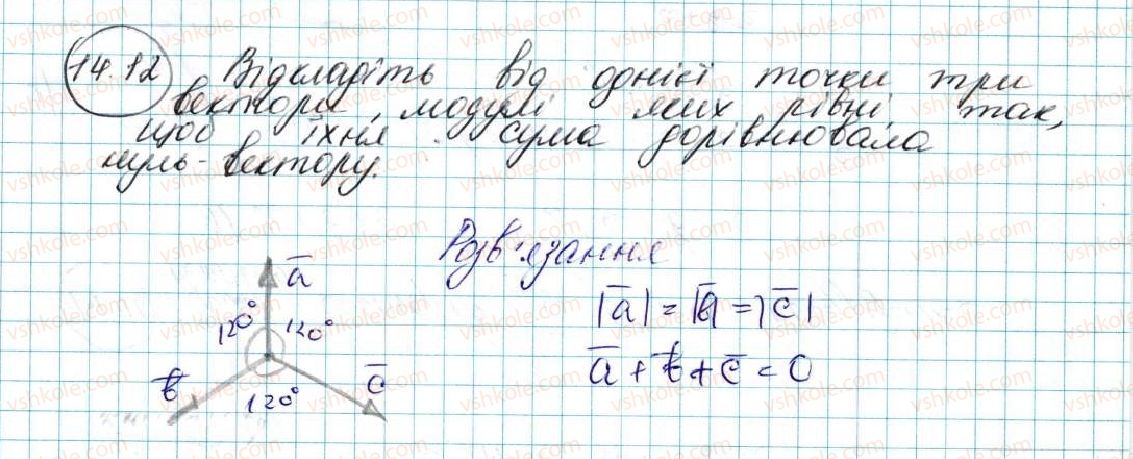 14.12 Відкладіть від однієї точки три
вектори, модулі яких рівні, так,
щоб їхня сума дорівнювала
нуль-вектору.
Розв'язання
a̅
120° 120°
|a̅| = |b̅| = |c̅|
b̅ 120° c̅
a̅ + b̅ + c̅ = 0
vshkole.com